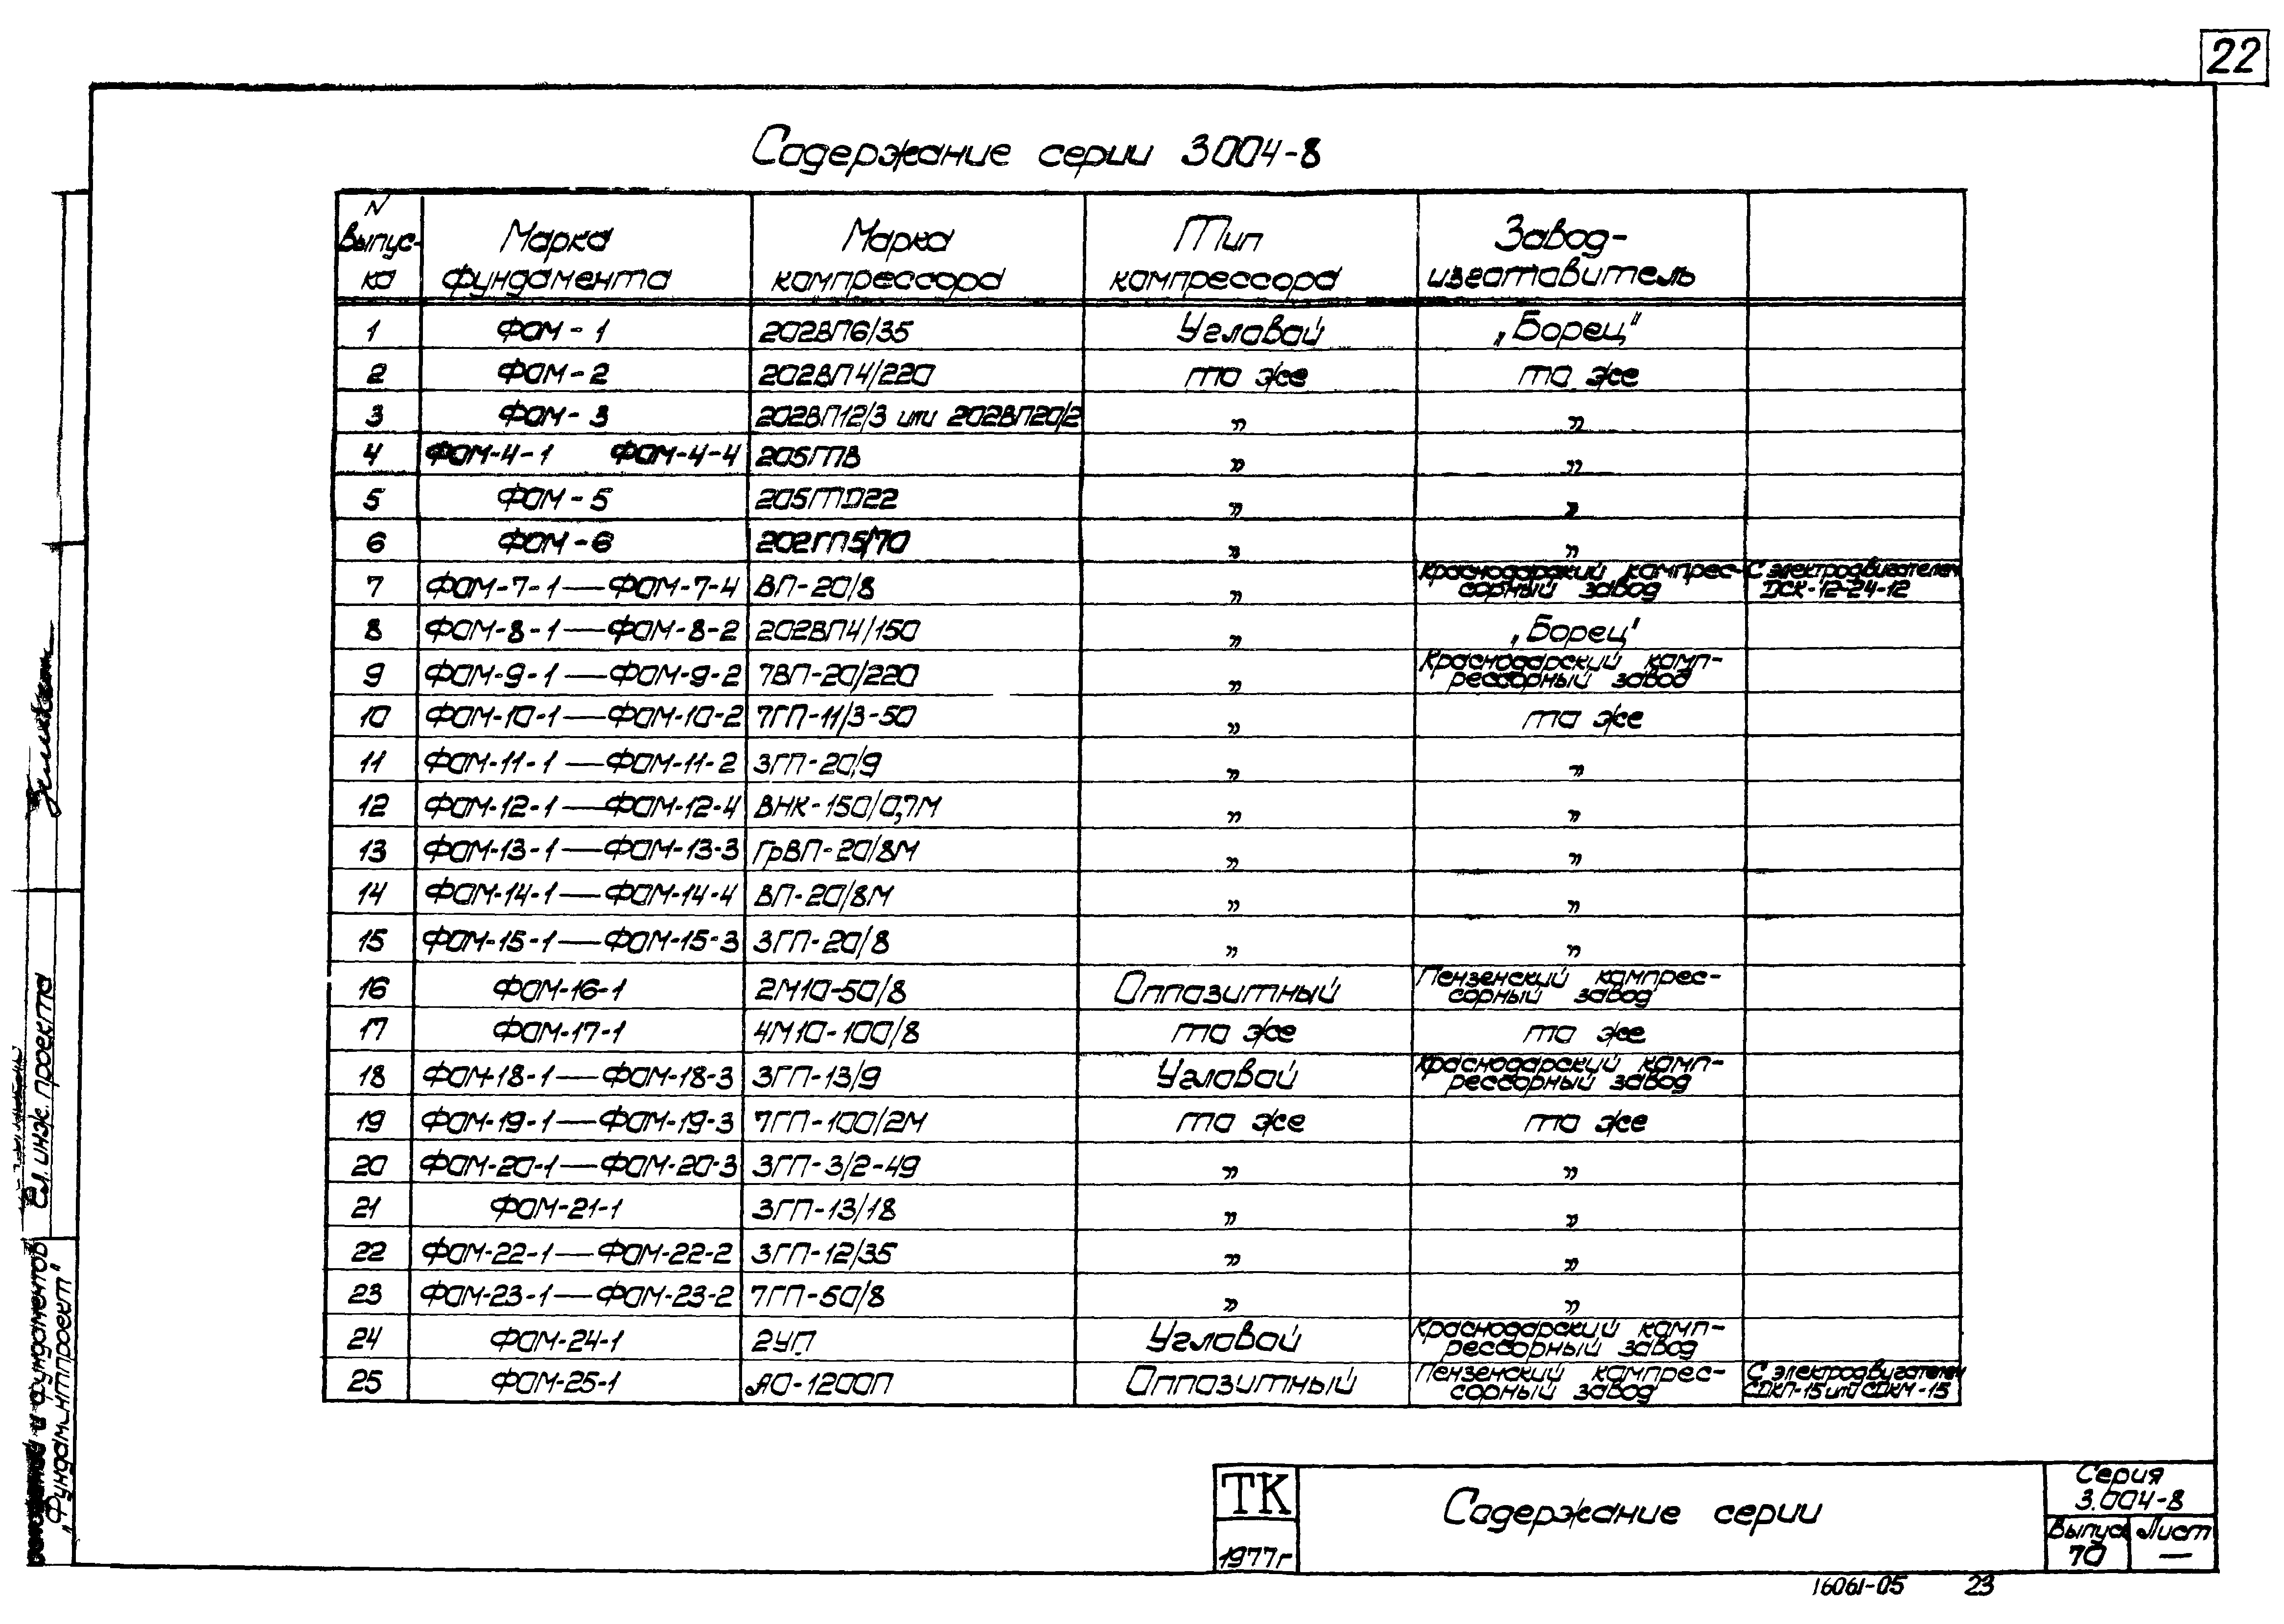 22
Содержание серии 3004-8
N выпус-ка | Марка фундамента | Марка компрессора | Тип компрессора | Завод-изготовитель
1 ФОМ-1 202ВП6/35 Угловой „Борец"
2 ФОМ-2 202ВП4/220 то же то же
3 ФОМ-3 202ВП12/3 или 202ВП20/2 " "
4 ФОМ-4-1 ФОМ-4-4 205ТВ " "
5 ФОМ-5 205ТD22 " "
6 ФОМ-6 202ГП5/70 " "
7 ФОМ-7-1—ФОМ-7-4 ВП-20/8 " Краснодарский компрес-сорный завод С электродвигателем ДСК-12-24-12
8 ФОМ-8-1—ФОМ-8-2 202ВП4/150 " „Борец"
9 ФОМ-9-1—ФОМ-9-2 7ВП-20/220 " Краснодарский комп-рессорный завод
10 ФОМ-10-1—ФОМ-10-2 7ГП-11/3-50 " то же
11 ФОМ-11-1—ФОМ-11-2 3ГП-20/9 " "
12 ФОМ-12-1—ФОМ-12-4 ВНК-150/0,7М " "
13 ФОМ-13-1—ФОМ-13-3 ГрВП-20/8М " "
14 ФОМ-14-1—ФОМ-14-4 ВП-20/8М " "
15 ФОМ-15-1—ФОМ-15-3 3ГП-20/8 " "
16 ФОМ-16-1 2М10-50/8 Оппозитный Пензенский компрес-сорный завод
17 ФОМ-17-1 4М10-100/8 то же то же
18 ФОМ-18-1—ФОМ-18-3 3ГП-13/9 Угловой Краснодарский комп-рессорный завод
19 ФОМ-19-1—ФОМ-19-3 7ГП-100/2М то же то же
20 ФОМ-20-1—ФОМ-20-3 3ГП-3/2-49 " "
21 ФОМ-21-1 3ГП-13/18 " "
22 ФОМ-22-1—ФОМ-22-2 3ГП-12/35 " "
23 ФОМ-23-1—ФОМ-23-2 7ГП-50/8 " "
24 ФОМ-24-1 2УП Угловой Краснодарский комп-рессорный завод
25 ФОМ-25-1 АО-1200П Оппозитный Пензенский компрес-сорный завод С электродвигателем СДКП-15 или СДКМ-15
Гл. инж. проекта
и фундаментов
„Фундаментпроект"
ТК
1977г
Содержание серии
Серия
3.004-8
Выпуск
70
Лист
—
16061-05 23